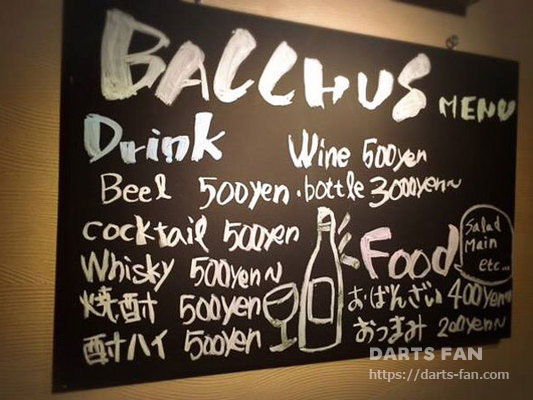 BACCHUS MENU
Drink
Wine 500yen
Beel 500yen
・bottle 3000yen~
cocktail 500yen
Whisky 500yen~
焼酎 500yen
酎ハイ 500yen
Food
Salad
Main
etc...
おばんざい 400yen~
おつまみ 200yen~
DARTS FAN
https://darts-fan.com/